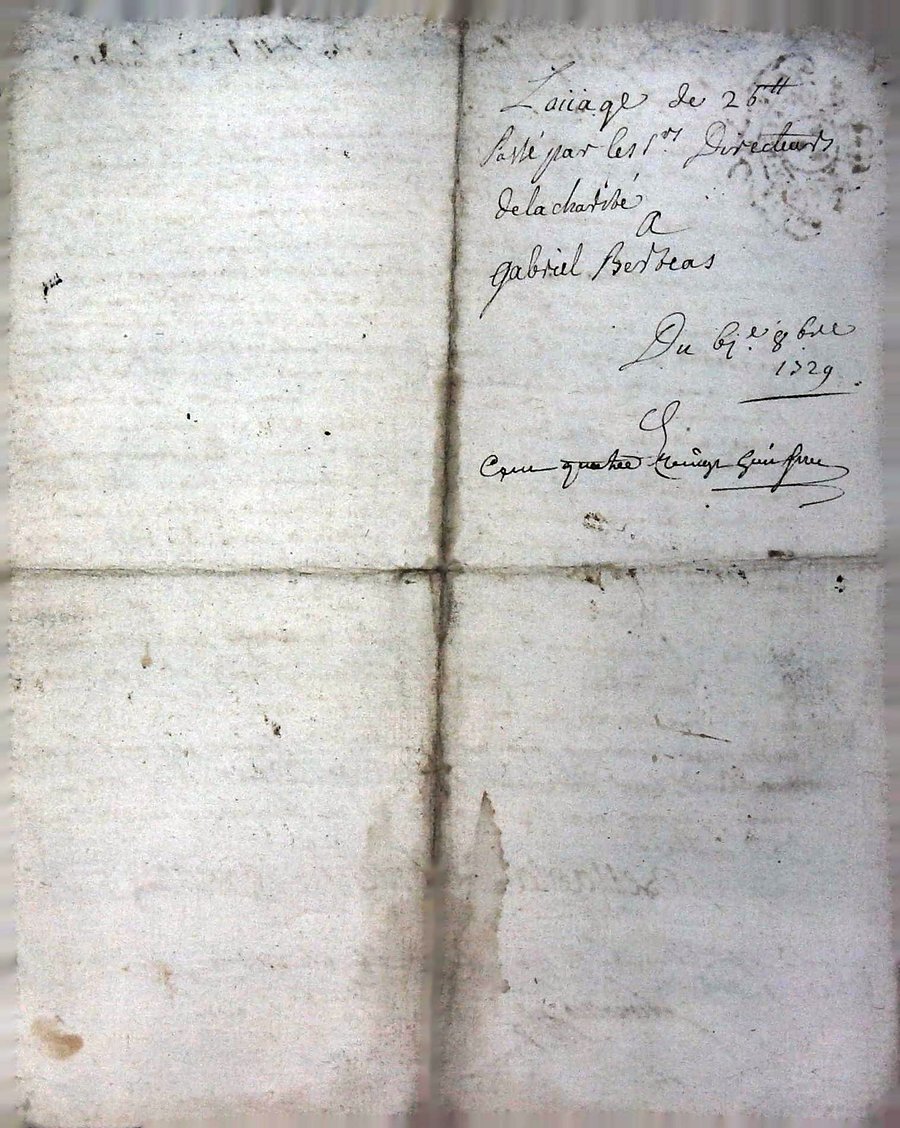 Loüage de 26tt
Passé par les Srs Directeurs
de la charité
A
gabriel Berbeas
Du bje 8bre
1729
Cent quatre vingt